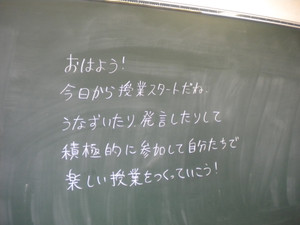 おはよう!
今日から授業スタートだね、
うなずいたり、発言したりして
積極的に参加して自分たちで
楽しい授業をつくっていこう!